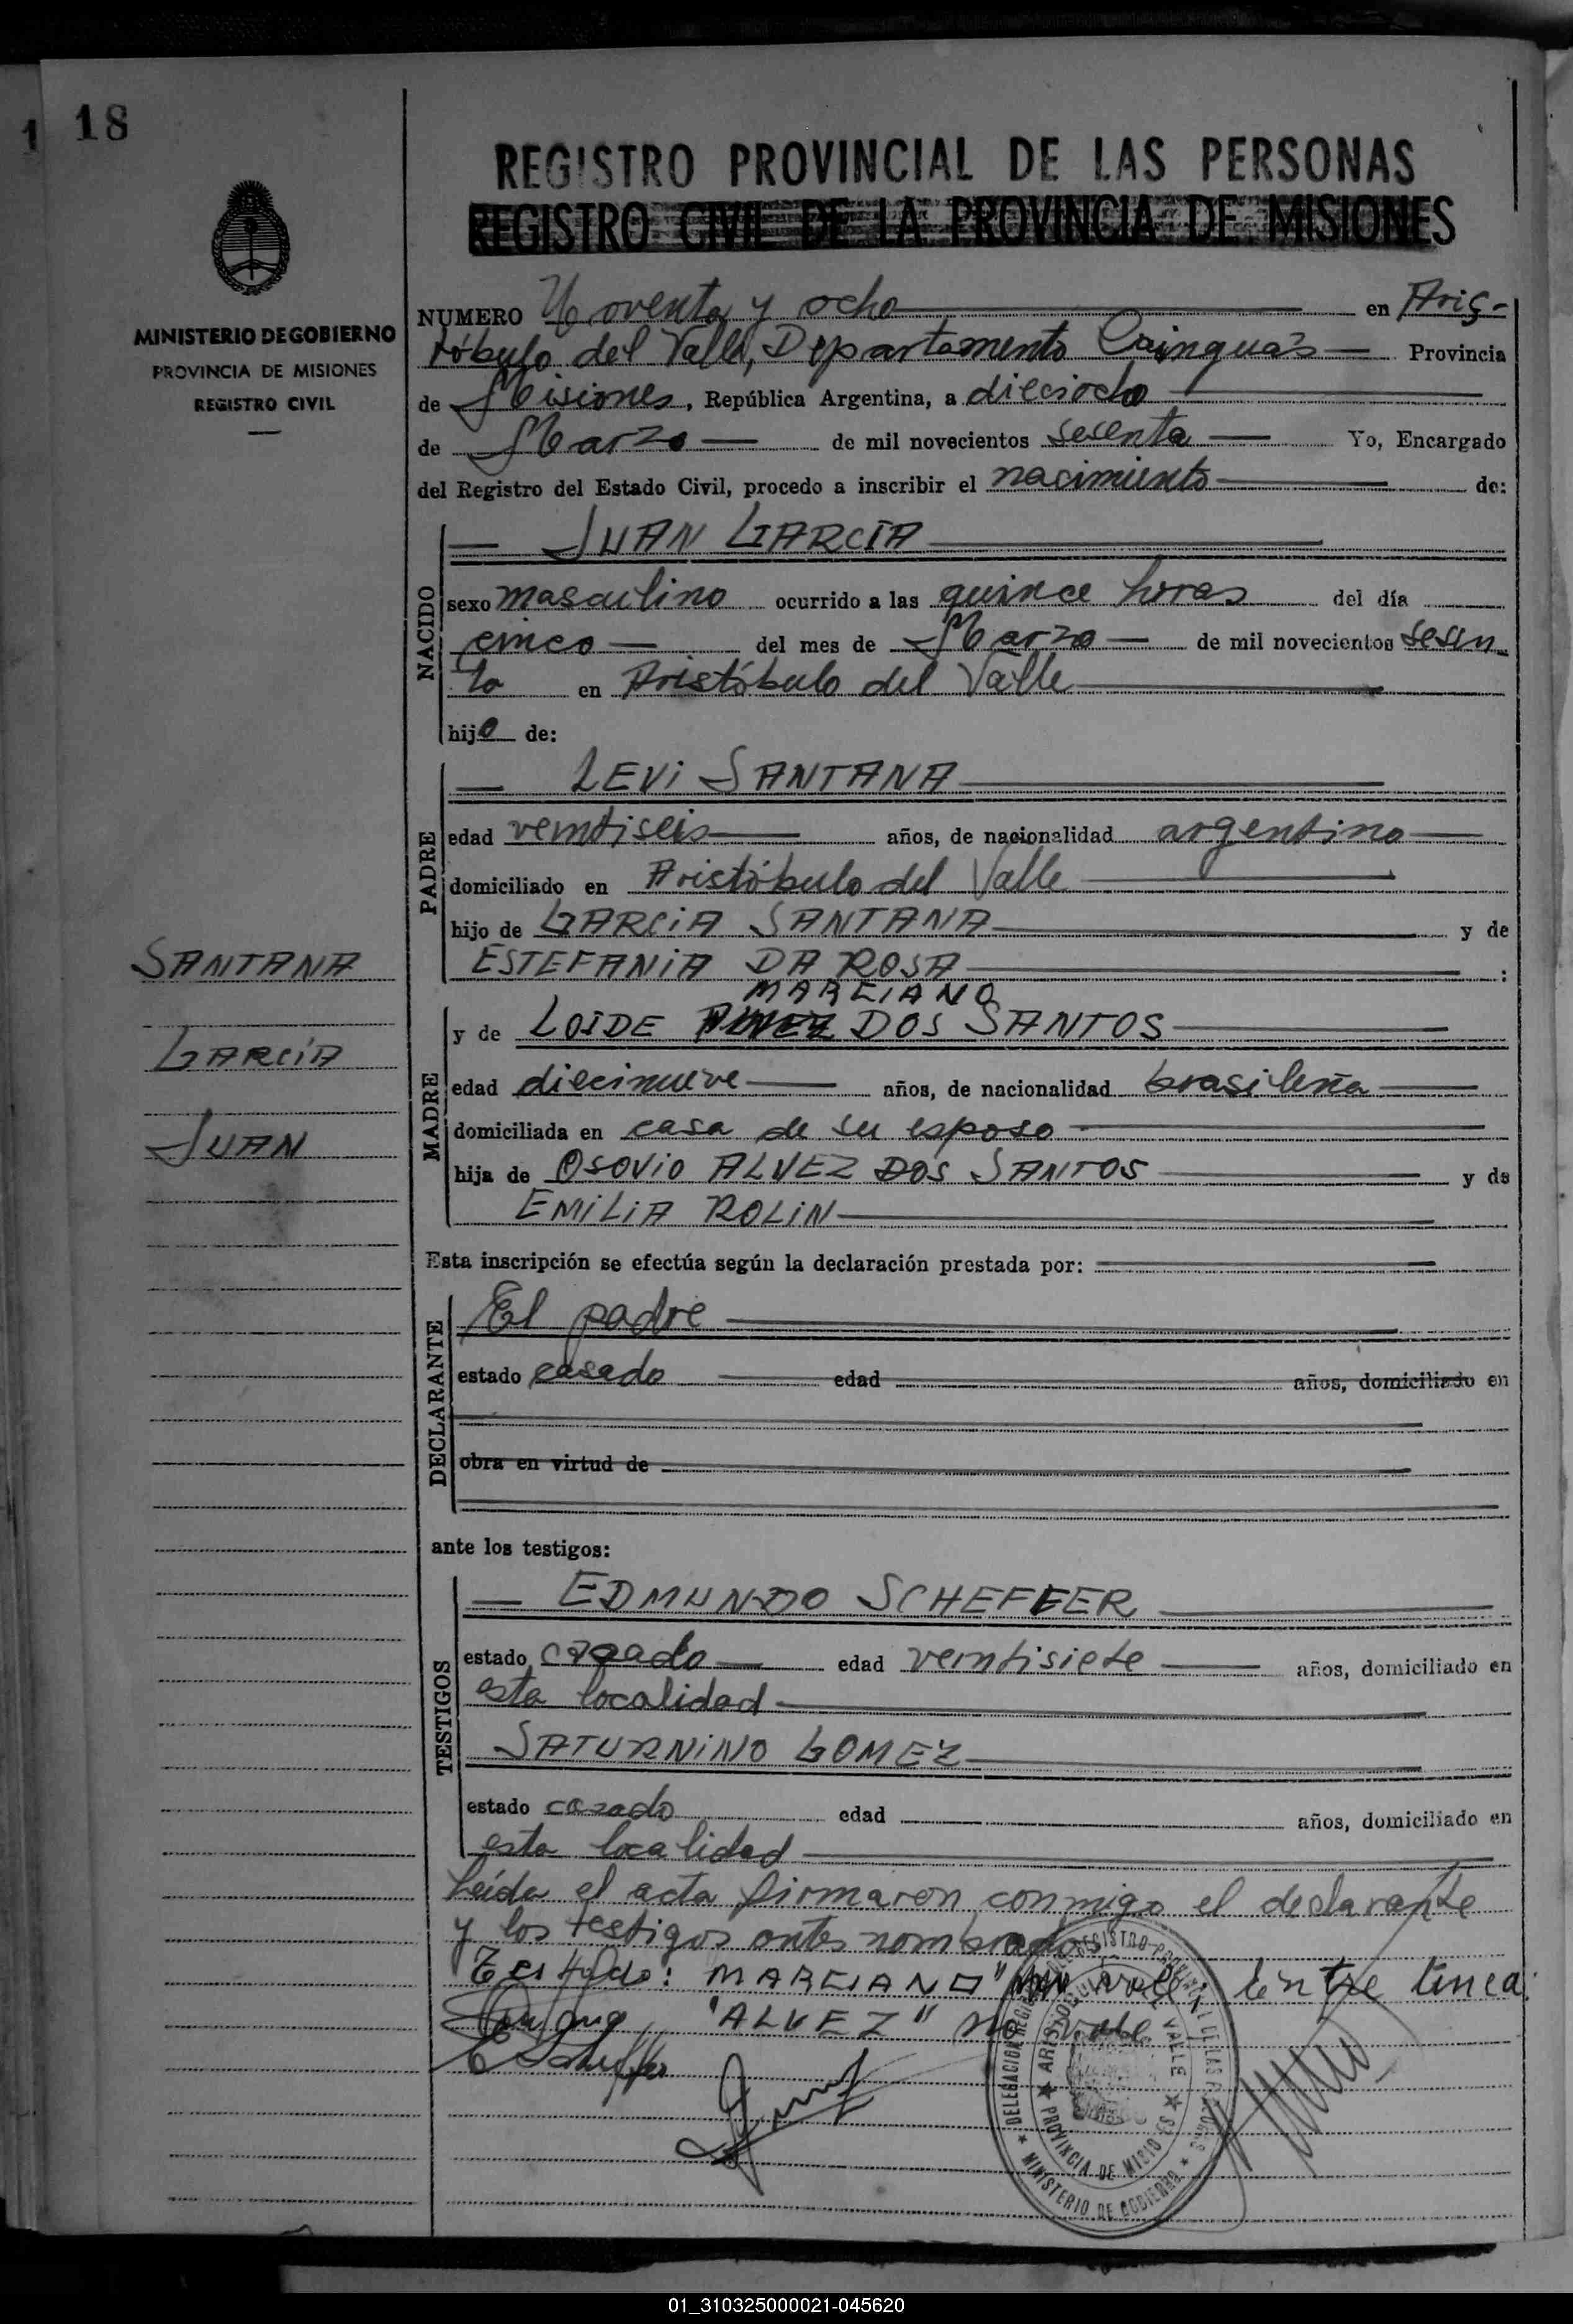 1 18
REGISTRO PROVINCIAL DE LAS PERSONAS
REGISTRO CIVIL DE LA PROVINCIA DE MISIONES
MINISTERIO DE GOBIERNO
PROVINCIA DE MISIONES
REGISTRO CIVIL
NUMERO Noventa y ocho en Aris-
tóbulo del Valle, Departamento Cainguás Provincia
de Misiones, República Argentina, a dieciocho
de Marzo de mil novecientos sesenta Yo, Encargado
del Registro del Estado Civil, procedo a inscribir el nacimiento de:
NACIDO
JUAN GARCIA
sexo masculino ocurrido a las quince horas del día
cinco del mes de Marzo de mil novecientos sesen
ta en Aristóbulo del Valle
hijo de:
PADRE
LEVI SANTANA
edad veintiseis años, de nacionalidad argentino
domiciliado en Aristóbulo del Valle
hijo de GARCIA SANTANA y de
ESTEFANIA DA ROSA :
SANTANA
GARCIA
JUAN
MADRE
MARCIANO
y de LOIDE DOS SANTOS
edad diecinueve años, de nacionalidad brasileña
domiciliada en casa de su esposo
hija de OSOVIO ALVEZ DOS SANTOS y de
EMILIA ROLIN
Esta inscripción se efectúa según la declaración prestada por:
DECLARANTE
El padre
estado casado edad años, domiciliado en
obra en virtud de
ante los testigos:
TESTIGOS
EDMUNDO SCHEFFER
estado casado edad veintisiete años, domiciliado en
esta localidad
SATURNINO GOMEZ
estado casado edad años, domiciliado en
esta localidad
Leída el acta firmaron conmigo el declarante
y los testigos antes nombrados
Testado: MARCIANO" vale entre linea:
"ALVEZ" no vale
E Scheffer
DELEGACION REGISTRO PROVINCIAL DE LAS PERSONAS
ARISTOBULO DEL VALLE
PROVINCIA DE MISIONES
MINISTERIO DE GOBIERNO
01_310325000021-045620